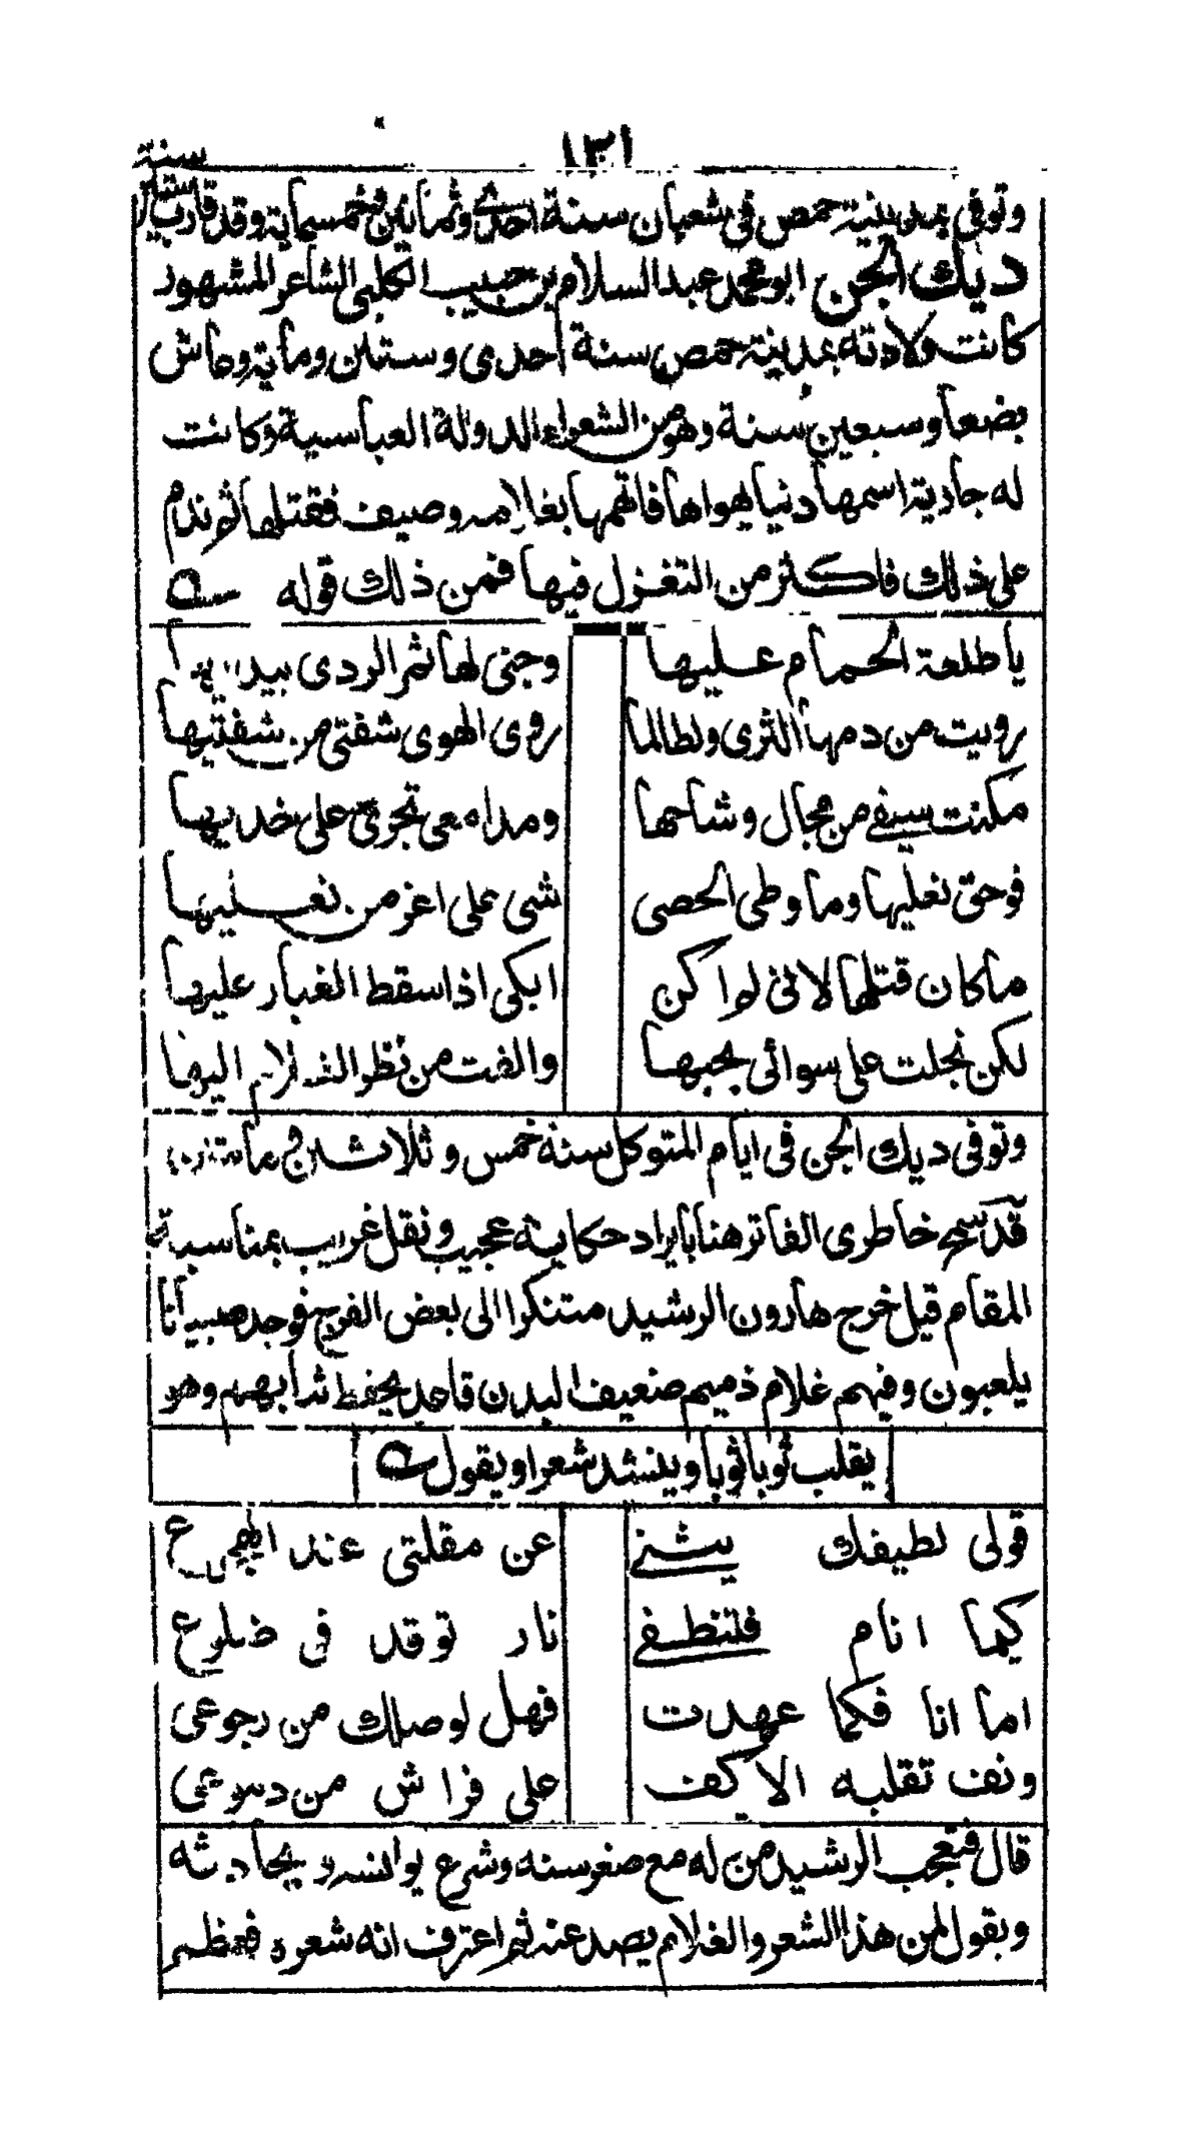 ١٣١
سنة
وتوفى بمدينة حمص فى شعبان سنة احدى وثمانين وخمسماية وقد قارب ستين
ديك الجن ابو محمد عبد السلام بن حبيب الكلبى الشاعر المشهور
كانت ولادته بمدينة حمص سنة احدى وستين وماية وعاش
بضعا وسبعين سنة وهو من الشعراء الدولة العباسية وكانت
له جارية اسمها دنيا يهواها فاتهمها بغلامه وصيف فقتلها ثم ندم
على ذلك فاكثر من التغزل فيها فمن ذلك قوله
يا طلعة الحمام عليها وجنى لها ثمر الردى بيديها
رويت من دمها الثرى ولطالما روى الهوى شفتى من شفتيها
مكنت سيفى من مجال وشاحها ومدامعى تجرى على خديها
فوحق نعليها وما وطى الحصى شى على اعز من نعليها
ما كان قتلها لانى لم اكن ابكى اذا سقط الغبار عليها
لكن بخلت على سوائى بحبها والفت من نظر الغلام اليها
وتوفى ديك الجن فى ايام المتوكل سنة خمس وثلاثين ومأتين
قد سمح خاطرى الفاتر هنا بايراد حكاية عجيب ونقل غريب بمناسبة
المقام قيل خرج هارون الرشيد متنكرا الى بعض الفرج فوجد صبيانا
يلعبون وفيهم غلام ذميم ضعيف البدن قاعد يحفظ ثيابهم وهو
يقلب ثوبا ثوبا وينشد شعرا ويقول
قولى لطيفك ينثنى عن مقلتى عند الهجوع
كيما انام فتنطفى نار توقد فى ضلوع
اما انا فكما عهدت فهل لوصلك من رجوعى
ونف تقلبه الاكف على فراش من دموعى
قال فتعجب الرشيد من له مع صغر سنه وشرع يوانسه ويحادثه
ويقول لمن هذا الشعر والغلام يصد عنه ثم اعترف انه شعره فعظم